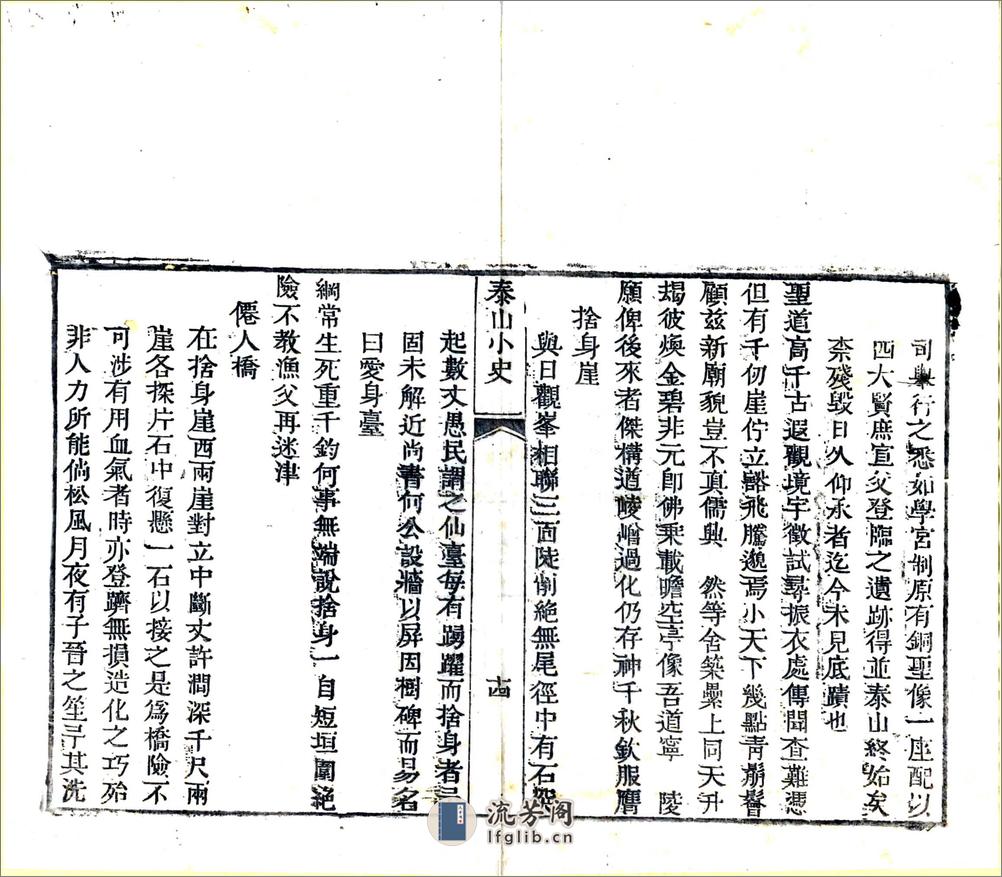 司興行之悉如學宮制原有銅聖像一座配以
四大賢庶宣父登臨之遺跡得並泰山終始矣
柰殘毀日久仰承者迄今未見底蹟也
聖道高千古遐觀境宇徵試尋振衣處傳聞查難憑
但有千仞崖佇立豁飛騰邈焉小天下幾點青
顧茲新廟貌豈不真儒興 然等舍築纍上同天升
朅彼煥金碧非元卽佛乘載瞻空亭像吾道寧 陵
願俾後來者傑構道崚嶒過化仍存神千秋欽服膺
捨身崖
與日觀峯相聯三面陡削絕無尾徑中有石
泰山小史
十四
起數丈愚民謂之仙臺每有踴躍而捨身者
固未解近尚書何公設牆以屏因樹碑而易名
曰愛身臺
綱常生死重千鈞何事無端說捨身一自短垣圍絕
險不教漁父再迷津
僊人橋
在捨身崖西兩崖對立中斷丈許澗深千尺兩
崖各探片石中復懸一石以接之是爲橋險不
可涉有用血氣者時亦登躋無損造化之巧殆
非人力所能倘松風月夜有子晉之笙于其洗
流芳阁
lfglib.cn